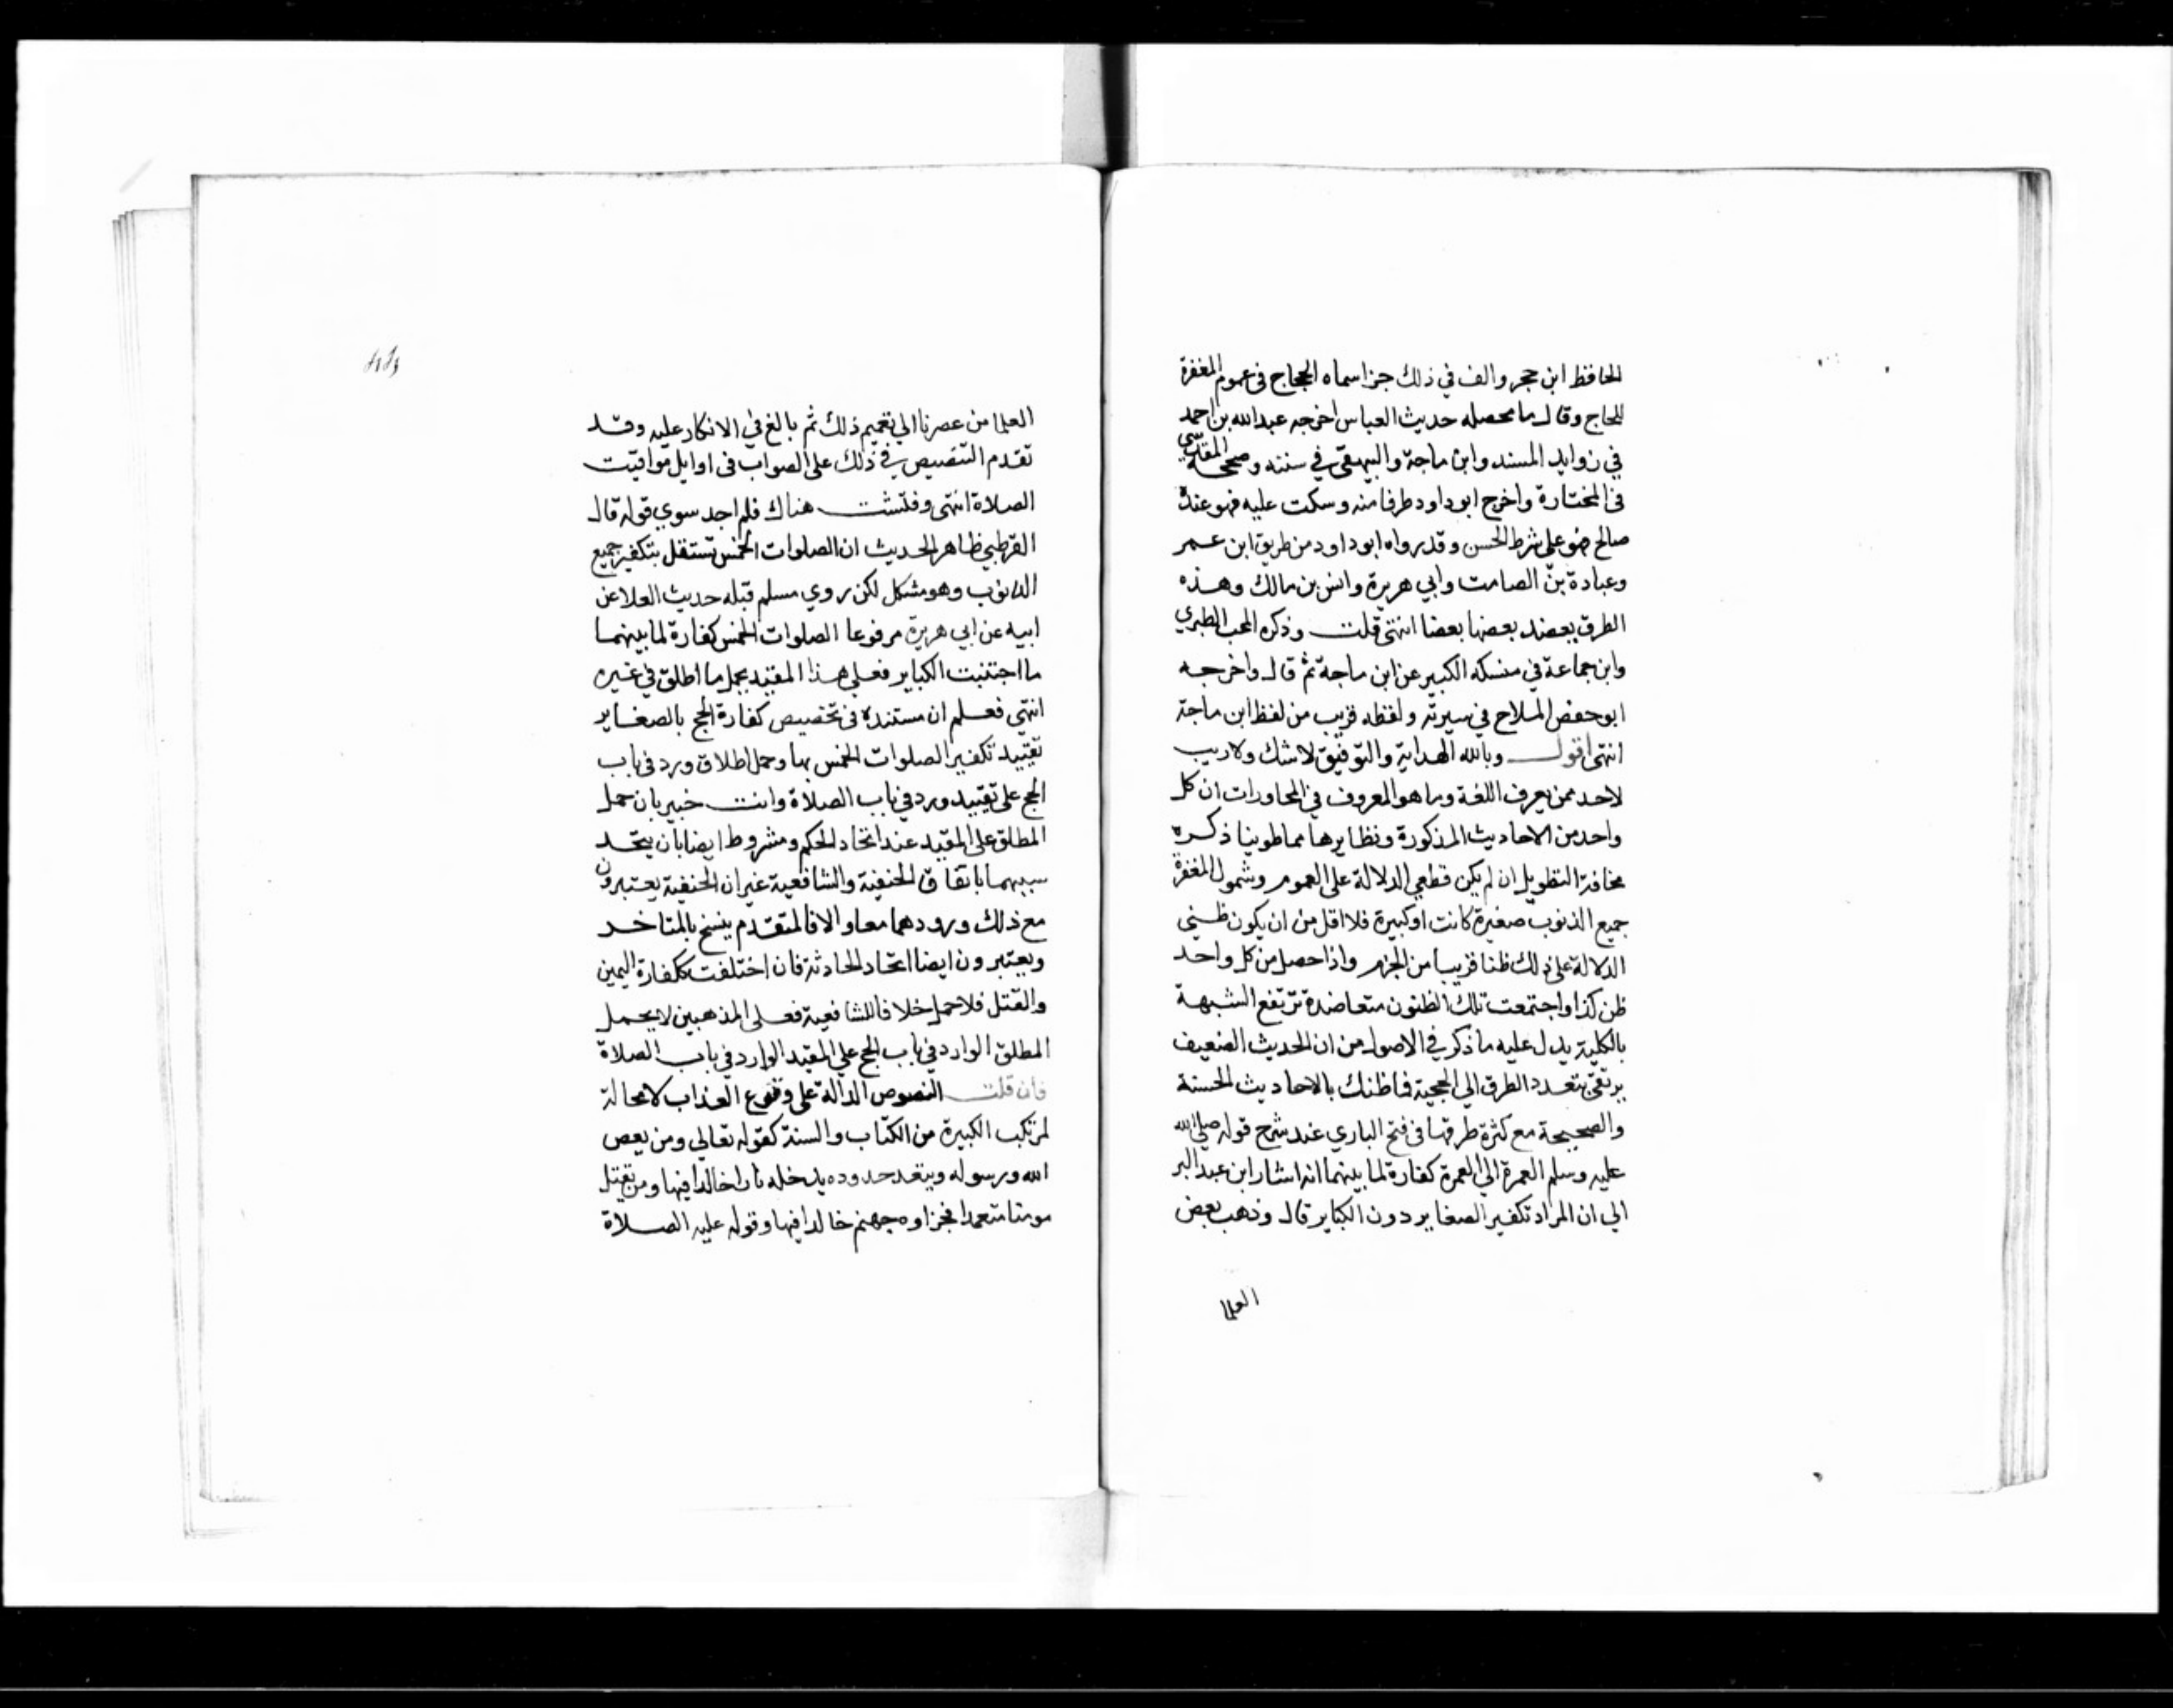 الحافظ ابن حجر والف في ذلك جزا سماه الحجاج في عموم المغفرة
للحاج وقال ما محصله حديث العباس اخرجه عبد الله بن احمد
في زوايد المسند وابن ماجة والبيهقي في سننه وصححه المقدسي
في المختارة واخرج ابوداود طرفا منه وسكت عليه فهو عنده
صالح فهو على شرط الحسن وقد رواه ابوداود من طريق ابن عمر
وعبادة بن الصامت وابي هريرة وانس بن مالك وهذه
الطرق يعضد بعضها بعضا انتهى قلت وذكره المحب الطبري
وابن جماعة في منسكه الكبير عن ابن ماجة ثم قال واخرجه
ابوحفص الملاح في سيرته ولفظه قريب من لفظ ابن ماجة
انتهى اقول وبالله الهداية والتوفيق لا شك ولا ريب
لاحد ممن يعرف اللغة وما هو المعروف في المحاورات ان كل
واحد من الاحاديث المذكورة ونظايرها مما طوينا ذكره
مخافة التطويل ان لم يكن قطعي الدلالة على العموم وشمول المغفرة
جميع الذنوب صغيرة كانت او كبيرة فلا اقل من ان يكون ظني
الدلالة على ذلك ظنا قريبا من الجزم واذا حصل من كل واحد
ظن كذا واجتمعت تلك الظنون متعاضدة ترتفع الشبهة
بالكلية يدل عليه ما ذكر في الاصول من ان الحديث الضعيف
يرتقى بتعدد الطرق الي الحجية فما ظنك بالاحاديث الحسنة
والصحيحة مع كثرة طرقها في فتح الباري عند شرح قوله صلى الله
عليه وسلم العمرة الي العمرة كفارة لما بينهما انه اشار ابن عبد البر
الي ان المراد تكفير الصغاير دون الكباير قال وذهب بعض
العلما
العلما من عصرنا الي تعميم ذلك ثم بالغ في الانكار عليه وقد
تقدم التنصيص في ذلك على الصواب في اوايل مواقيت
الصلاة انتهى وفتشت هناك فلم اجد سوي قوله قال
القرطبي ظاهر الحديث ان الصلوات الخمس تستقل بتكفير جميع
الذنوب وهو مشكل لكن روي مسلم قبله حديث العلا عن
ابيه عن ابي هريرة مرفوعا الصلوات الخمس كفارة لما بينهما
ما اجتنبت الكباير فعلي هذا المقيد يحمل ما اطلق في غيره
انتهى فعلم ان مستنده في تخصيص كفارة الحج بالصغاير
تقييد تكفير الصلوات الخمس بها وحمل اطلاق ورد في باب
الحج على تقييد ورد في باب الصلاة وانت خبير بان حمل
المطلق على المقيد عند اتحاد الحكم ومشروط ايضا بان يتحد
سببهما باتفاق الحنفية والشافعية غير ان الحنفية يعتبرون
مع ذلك ورودهما معا والا فالمتقدم ينسخ بالمتاخر
ويعتبرون ايضا اتحاد الحادثة فان اختلفت ككفارة اليمين
والقتل فلا حمل خلافا للشافعية فعلى المذهبين لا يحمل
المطلق الوارد في باب الحج علي المقيد الوارد في باب الصلاة
فان قلت النصوص الدالة على وقوع العذاب لا محالة
لمرتكب الكبيرة من الكتاب والسنة كقوله تعالي ومن يعص
الله ورسوله ويتعد حدوده يدخله نارا خالدا فيها ومن يقتل
مومنا متعمدا فجزاوه جهنم خالدا فيها وقوله عليه الصلاة